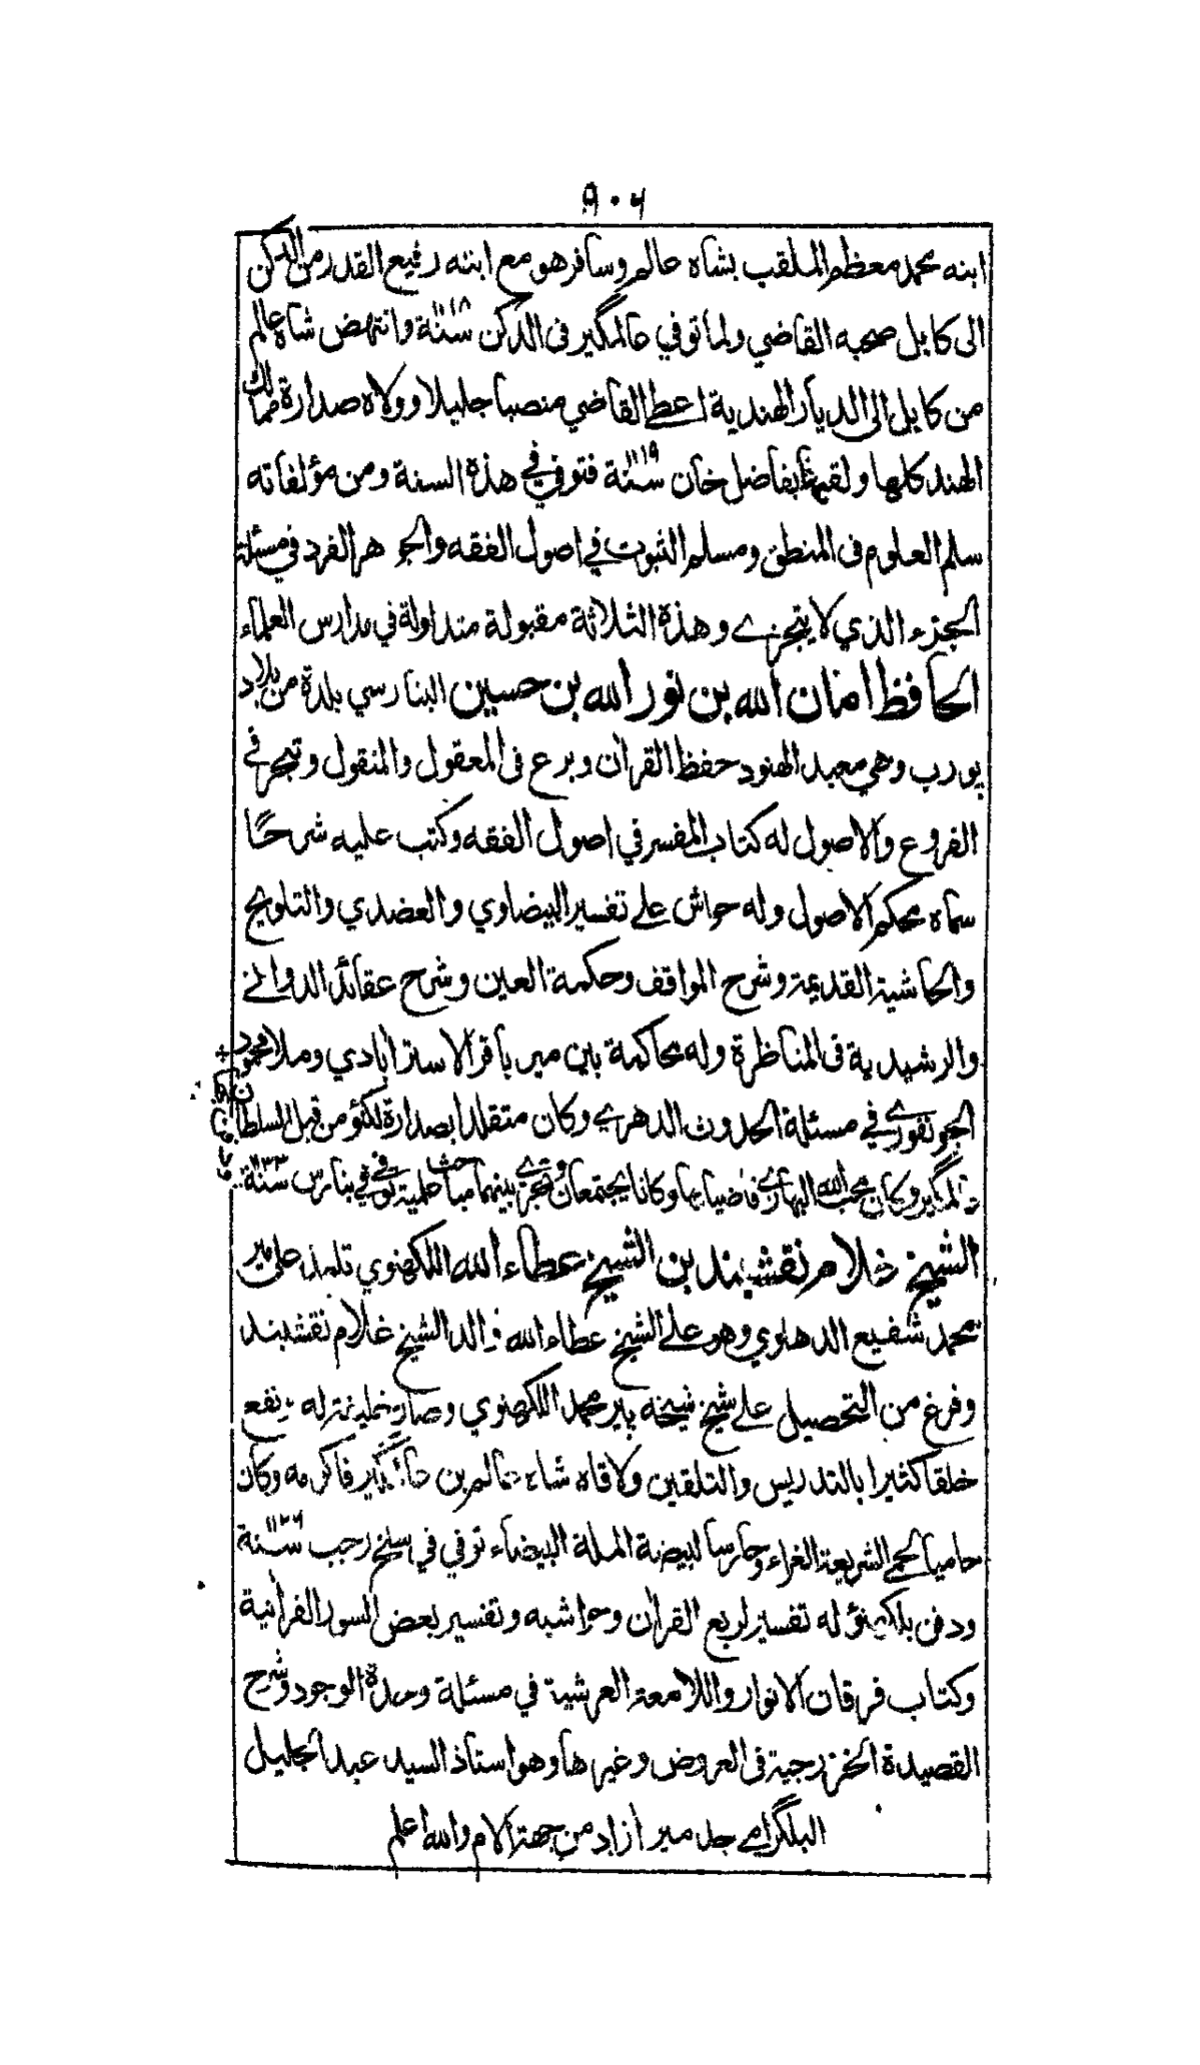 ٩٠٦
ابنه محمد معظم الملقب بشاه عالم وسافر هو مع ابنه رفيع القدر من الدكن
الى كابل صحبه القاضي ولما توفي عالمگير فى الدكن سنة ١١١٨ وانتهض شاه عالم
من كابل الى الديار الهندية اعطى القاضي منصبا جليلا وولاه صدارة ممالك
الهند كلها ولقبه بفاضل خان سنة ١١١٩ فتوفي في هذه السنة ومن مؤلفاته
سلم العلوم فى المنطق ومسلم الثبوت في اصول الفقه والجوهر الفرد في مسئلة
الجزء الذي لا يتجزے وهذه الثلاثة مقبولة متداولة في مدارس العلماء
الحافظ امان الله بن نور الله بن حسين البنارسي بلدة من بلاد
پورب وهي معبد الهنود حفظ القران وبرع فى المعقول والمنقول وتبحر في
الفروع والاصول له كتاب المفسر في اصول الفقه وكتب عليه شرحًا
سماه محكم الاصول وله حواش على تفسير البيضاوي والعضدي والتلويح
والحاشية القديمة وشرح المواقف وحكمة العين وشرح عقائد الدوانے
والرشيدية فى المناظرة وله محاكمة بين مير باقر الاسترابادي وملا محمود
الجونفورے في مسئلة الحدوث الدهرے وكان متقلدا بصدارة لكنؤ من قبل السلطان
عالمگير وكان محب الله البهارے قاضيا بها وكانا يجتمعان وتجرے بينهما مباحث علمية توفي في بنارس سنة ١١٣٣
الشيخ غلام نقشبند بن الشيخ عطاء الله اللكهنوي تلمذ على مير
محمد شفيع الدهلوي وهو على الشيخ عطاء الله والد الشيخ غلام نقشبند
وفرغ من التحصيل على شيخ شيخه پير محمد اللكهنوي وصار نفع
خلقا كثيرا بالتدريس والتلقين ولاقاه شاه عالم بن عالمگير فاكرمه وكان
حاميا لحمى الشريعة الغراء وحارسا لبيضة الملة البيضاء توفي في سلخ رجب سنة ١١٢٦
ودفن بلكهنؤ له تفسير لربع القران وحواشيه وتفسير بعض السور القرانية
وكتاب فرقان الانوار واللامعة العرشية في مسئلة وحدة الوجود وشرح
القصيدة الخزرجية فى العروض وغيرها وهو استاذ السيد عبد الجليل
البلگرامے جد مير ازاد من جهة الام والله اعلم